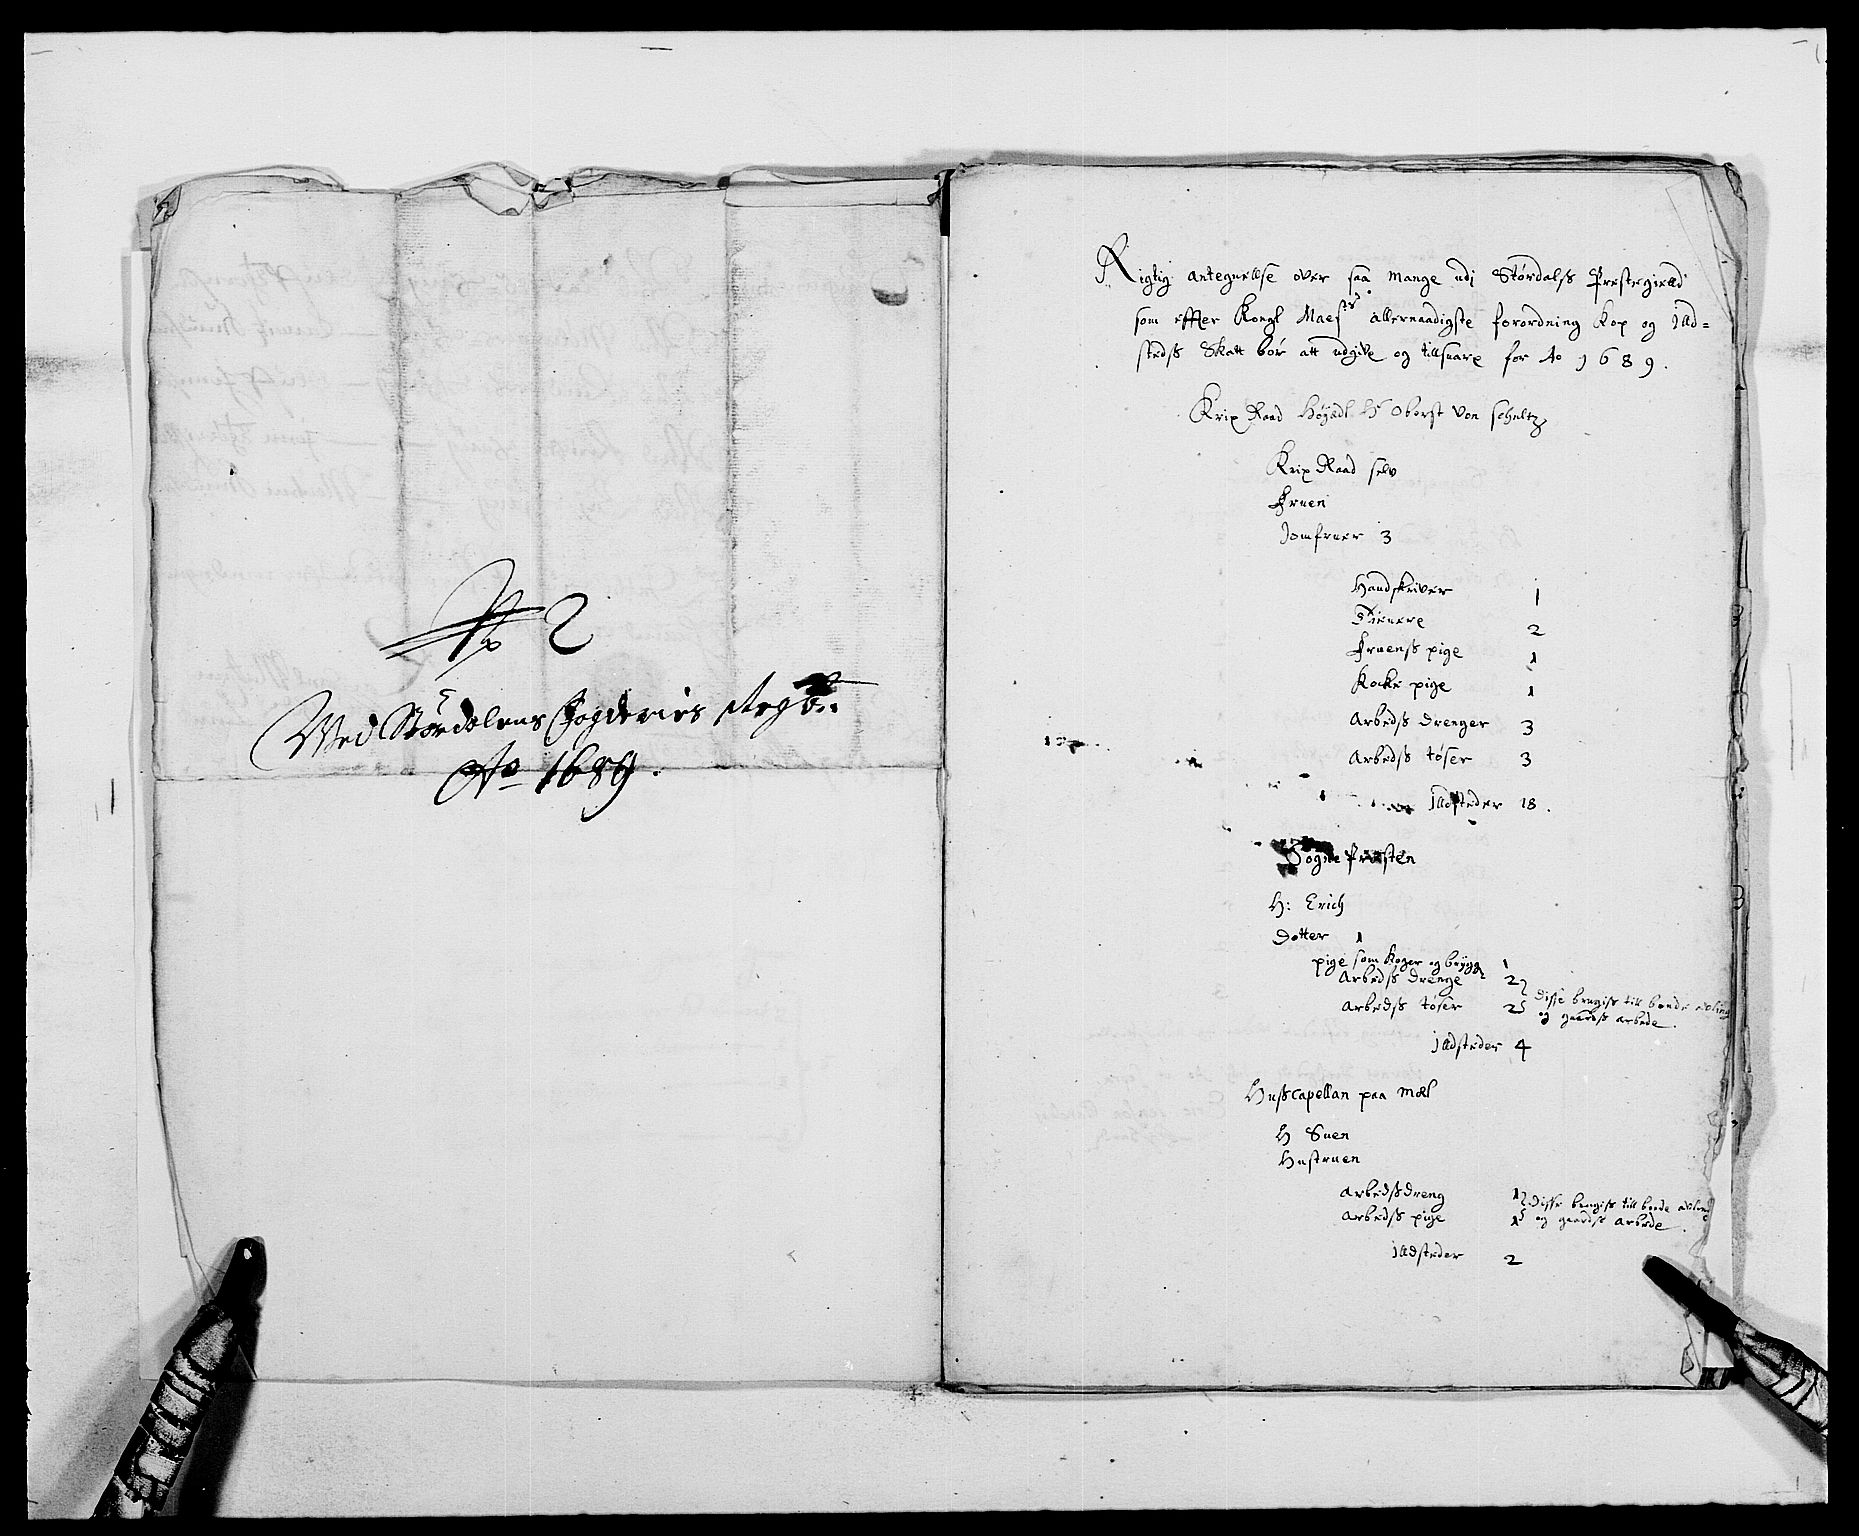 No 2
Wed Stördalens Fogderies Regb:
Ao 1689.
Rigtig antegnellse over saa mange udj Størdalss Prestegield
som effter Kongl Maestz allernaadigste forordning Kop og Illd=
stedss Skatt bør att udgive og tillsuare for Ao 1689.
Krix Raad Høyedl Hr Oberst von Schultz
Krix Raad selv
Fruen
Jomfruer 3
Handskriver 1
Tienere 2
Fruenss pige 1
Kocke pige 1
Arbedss drenger 3
Arbedss tøser 3
Illdsteder 18.
Sogne Presten
H: Erich
Dotter 1
pige som Koger og brygg 1
Arbedss drenge 2
Arbedss tøser 2 Disse brugiss till bonde
og gaardss arbede.
Illdsteder 4
Husscapellan paa mæl
H Suen
Hustruen
Arbedssdreng 1 Disse brugiss till bonde
Arbedss pige 1 og gaardss arbede
Illdsteder 2